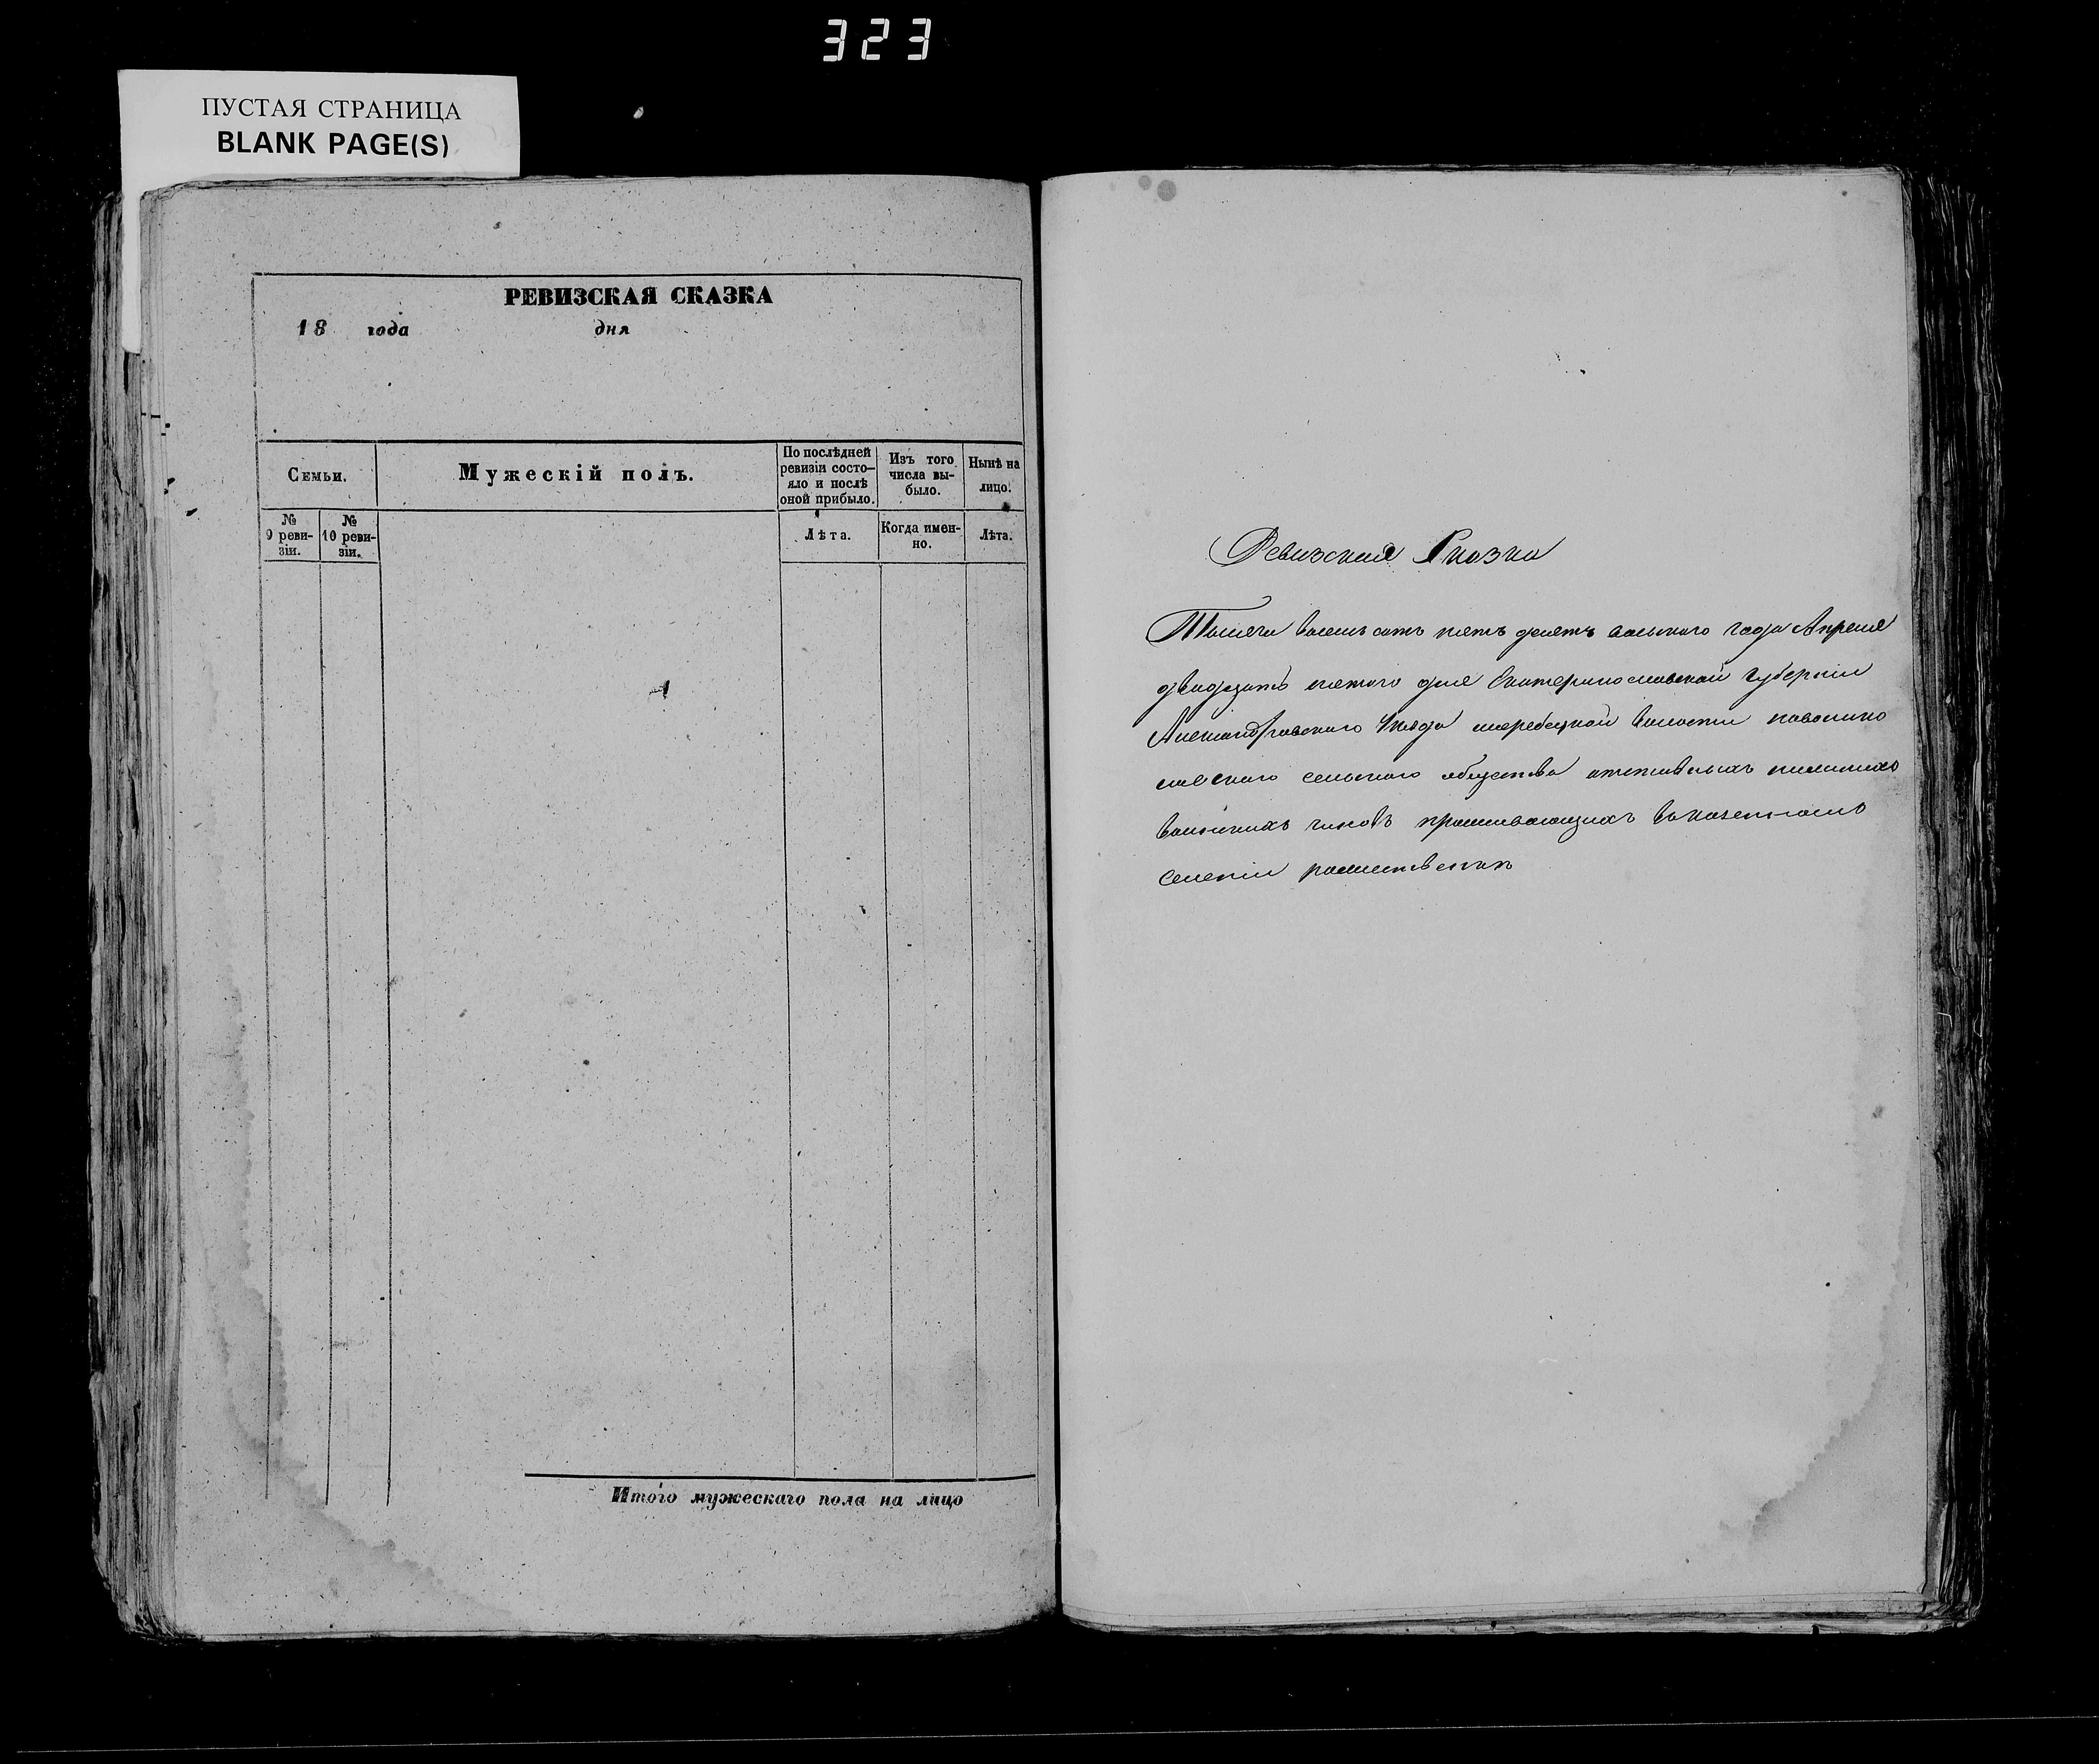 323
ПУСТАЯ СТРАНИЦА
BLANK PAGE(S)
РЕВИЗСКАЯ СКАЗКА
18 года дня
Семьи.
Мужескій полъ.
По послѣдней
ревизіи состо-
яло и послѣ
оной прибыло.
Изъ того
числа вы-
было.
Нынѣ на
лицо.
№
9 реви-
зіи.
№
10 реви-
зіи.
Лѣта.
Когда имен-
но.
Лѣта.
Итого мужескаго пола на лицо
Ревизская Сказка
Тысяча восемь сотъ пять десятъ восьмого года Апреля
двадцать пятого дня Екатеринославской Губерніи
Александровского Уезда жеребецкой волости новонико
лаевского сельского общества отставныхъ нижнихъ
воинскихъ чиновъ проживающихъ вказенномъ
селеніи